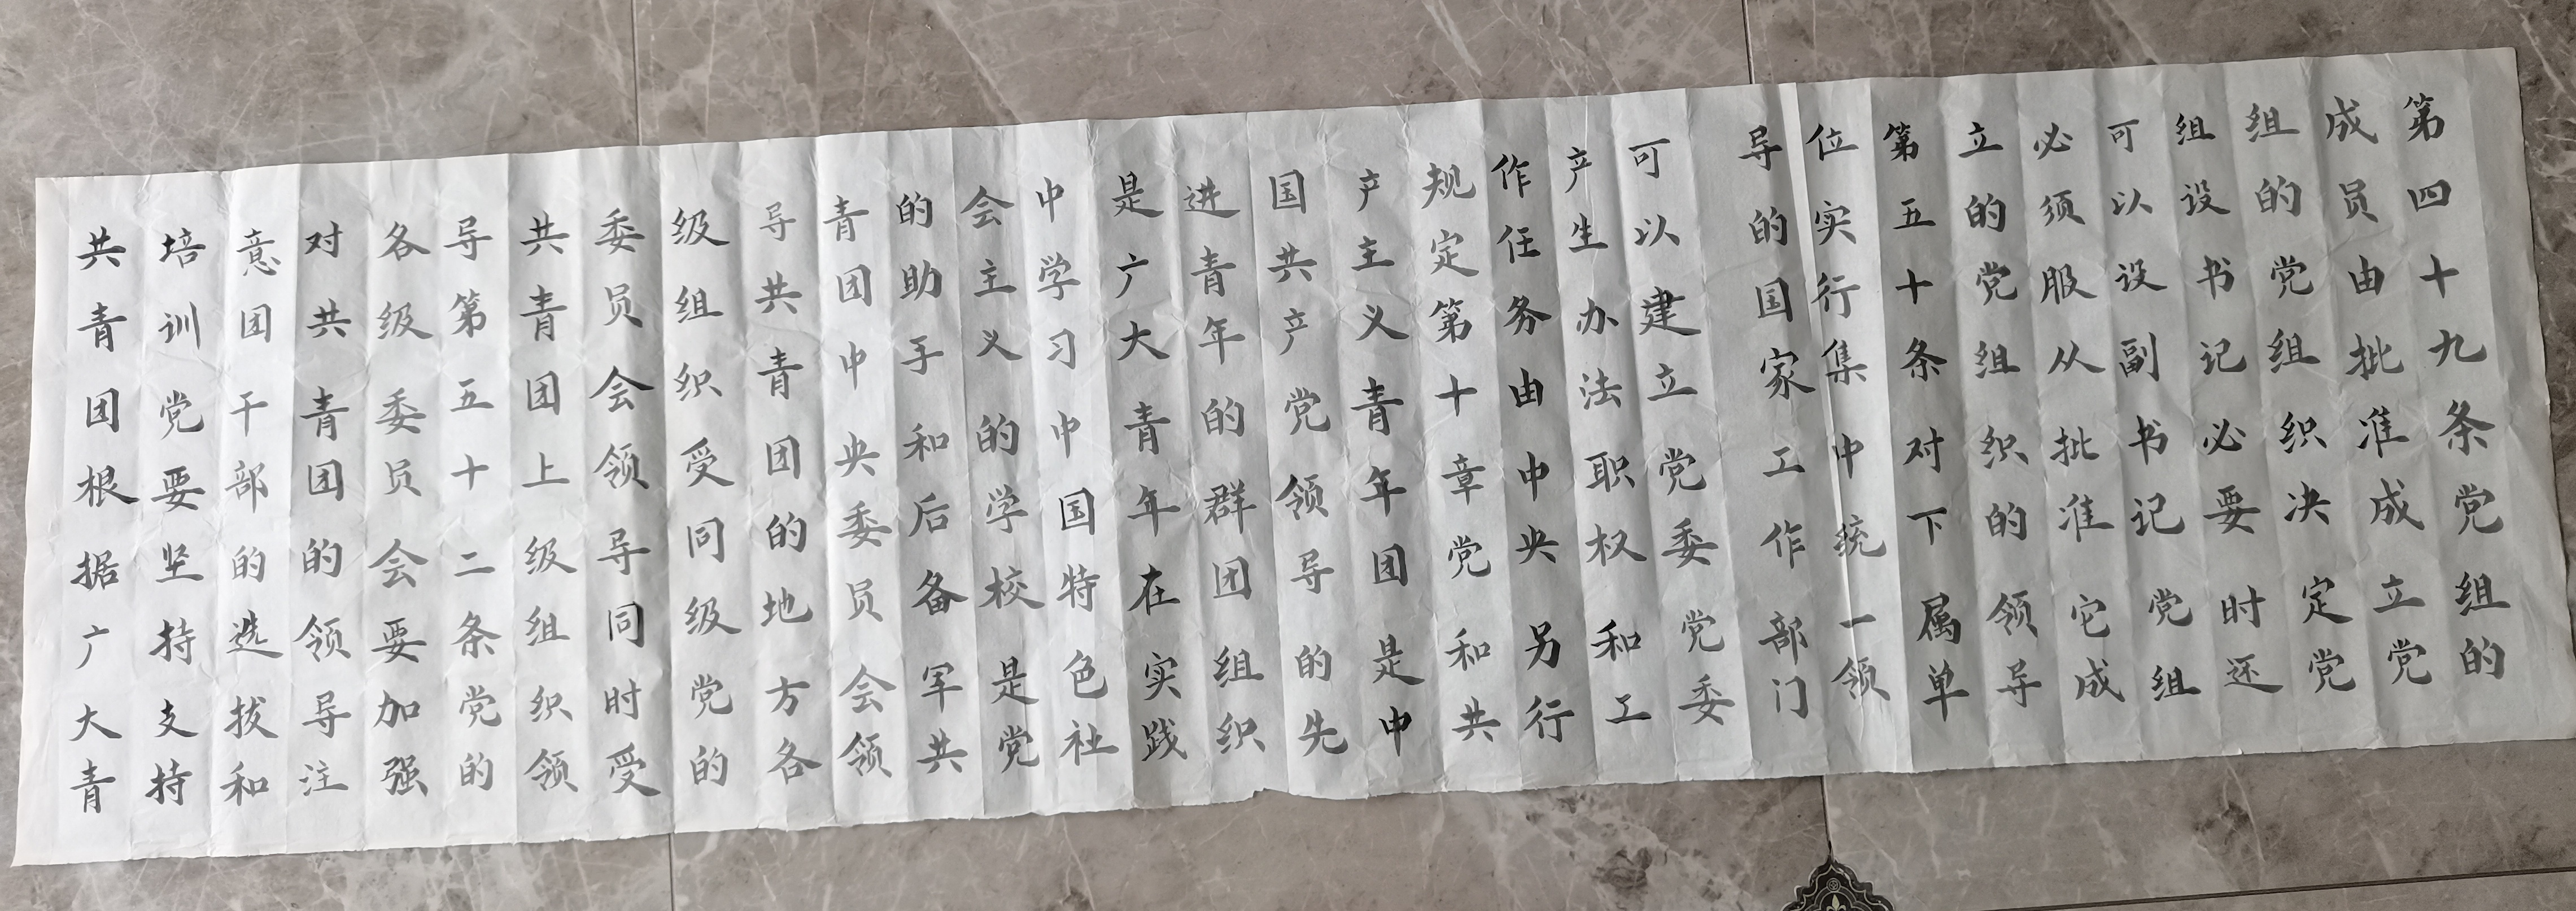 第四十九条党组的
成员由批准成立党
组的党组织决定党
组设书记必要时还
可以设副书记党组
必须服从批准它成
立的党组织的领导
第五十条对下属单
位实行集中统一领
导的国家工作部门
可以建立党委党委
产生办法职权和工
作任务由中央另行
规定第十章党和共
产主义青年团是中
国共产党领导的先
进青年的群团组织
是广大青年在实践
中学习中国特色社
会主义的学校是党
的助手和后备军共
青团中央委员会领
导共青团的地方各
级组织受同级党的
委员会领导同时受
共青团上级组织领
导第五十二条党的
各级委员会要加强
对共青团的领导注
意团干部的选拔和
培训党要坚持支持
共青团根据广大青